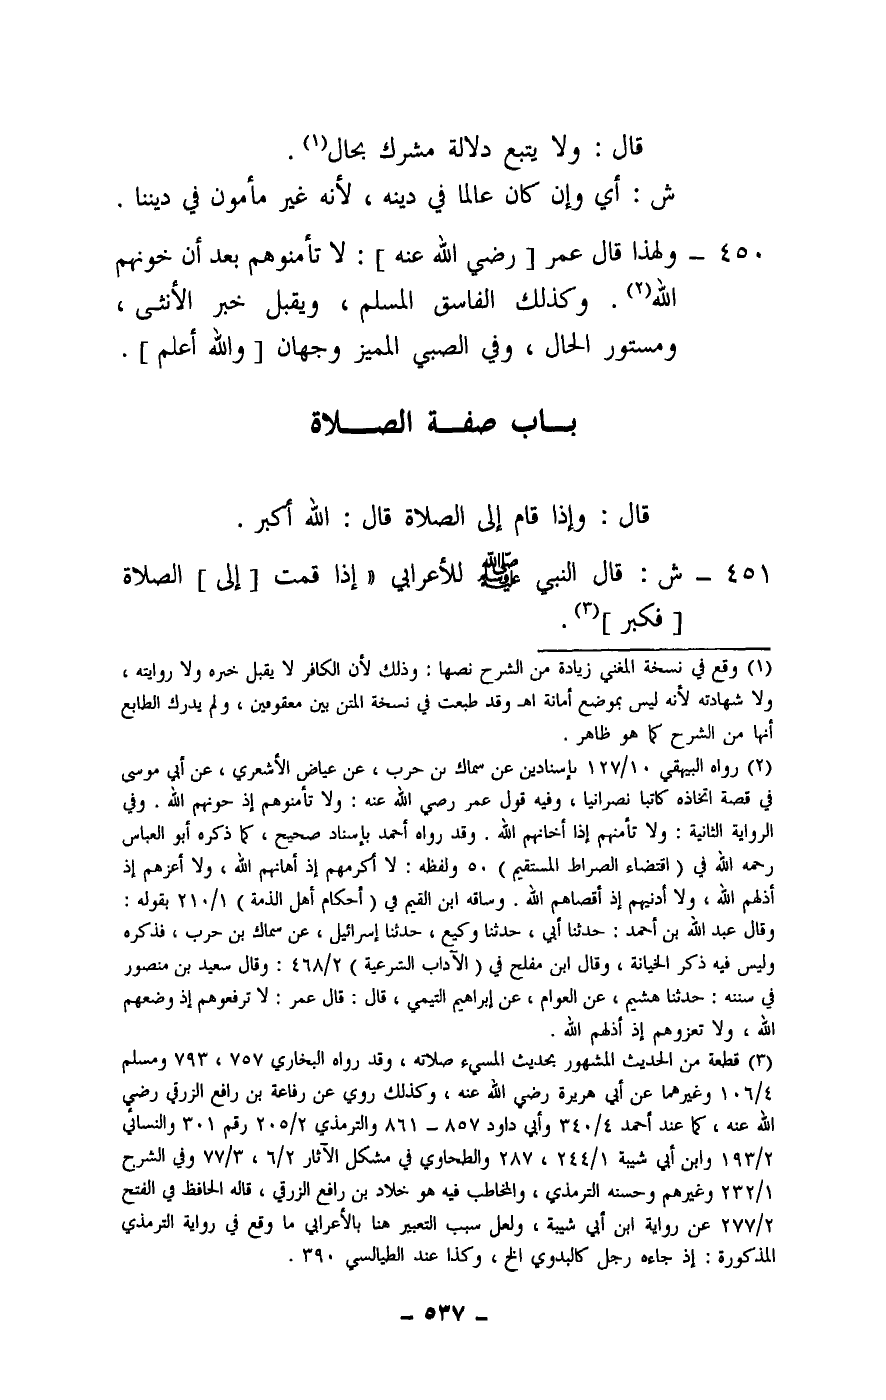 قال : ولا يتبع دلالة مشرك بحال(١) .
ش : أي وإن كان عالما في دينه ، لأنه غير مأمون في ديننا .
٤٥٠ – ولهذا قال عمر [ رضي الله عنه ] : لا تأمنوهم بعد أن خونهم
الله(٢) . وكذلك الفاسق المسلم ، ويقبل خبر الأنثى ،
ومستور الحال ، وفي الصبي المميز وجهان [ والله أعلم ] .
بـــاب صفـــة الصـــلاة
قال : وإذا قام إلى الصلاة قال : الله أكبر .
٤٥١ – ش : قال النبي ﷺ للأعرابي « إذا قمت [ إلى ] الصلاة
[ فكبر ](٣) .
(١) وقع في نسخة المغني زيادة من الشرح نصها : وذلك لأن الكافر لا يقبل خبره ولا روايته ،
ولا شهادته لأنه ليس بموضع أمانة اهـ وقد طبعت في نسخة المتن بين معقوفين ، ولم يدرك الطابع
أنها من الشرح كما هو ظاهر .
(٢) رواه البيهقي ١٢٧/١٠ بإسنادين عن سماك بن حرب ، عن عياض الأشعري ، عن أبي موسى
في قصة اتخاذه كاتبا نصرانيا ، وفيه قول عمر رضي الله عنه : ولا تأمنوهم إذ خونهم الله . وفي
الرواية الثانية : ولا تأمنهم إذا أخانهم الله . وقد رواه أحمد بإسناد صحيح ، كما ذكره أبو العباس
رحمه الله في ( اقتضاء الصراط المستقيم ) ٥٠ ولفظه : لا أكرمهم إذ أهانهم الله ، ولا أعزهم إذ
أذلهم الله ، ولا أدنيهم إذ أقصاهم الله . وساقه ابن القيم في ( أحكام أهل الذمة ) ٢١٠/١ بقوله :
وقال عبد الله بن أحمد : حدثنا أبي ، حدثنا وكيع ، حدثنا إسرائيل ، عن سماك بن حرب ، فذكره
وليس فيه ذكر الخيانة ، وقال ابن مفلح في ( الآداب الشرعية ) ٤٦٨/٢ : وقال سعيد بن منصور
في سننه : حدثنا هشيم ، عن العوام ، عن إبراهيم التيمي ، قال : قال عمر : لا ترفعوهم إذ وضعهم
الله ، ولا تعزوهم إذ أذلهم الله .
(٣) قطعة من الحديث المشهور بحديث المسيء صلاته ، وقد رواه البخاري ٧٥٧ ، ٧٩٣ ومسلم
١٠٦/٤ وغيرهما عن أبي هريرة رضي الله عنه ، وكذلك روي عن رفاعة بن رافع الزرقي رضي
الله عنه ، كما عند أحمد ٣٤٠/٤ وأبي داود ٨٥٧ – ٨٦١ والترمذي ٢٠٥/٢ رقم ٣٠١ والنسائي
١٩٣/٢ وابن أبي شيبة ٢٤٤/١ ، ٢٨٧ والطحاوي في مشكل الآثار ٦/٢ ، ٧٧/٣ وفي الشرح
٢٣٢/١ وغيرهم وحسنه الترمذي ، والمخاطب فيه هو خلاد بن رافع الزرقي ، قاله الحافظ في الفتح
٢٧٧/٢ عن رواية ابن أبي شيبة ، ولعل سبب التعبير هنا بالأعرابي ما وقع في رواية الترمذي
المذكورة : إذ جاءه رجل كالبدوي الخ ، وكذا عند الطيالسي ٣٩٠ .
– ٥٣٧ –